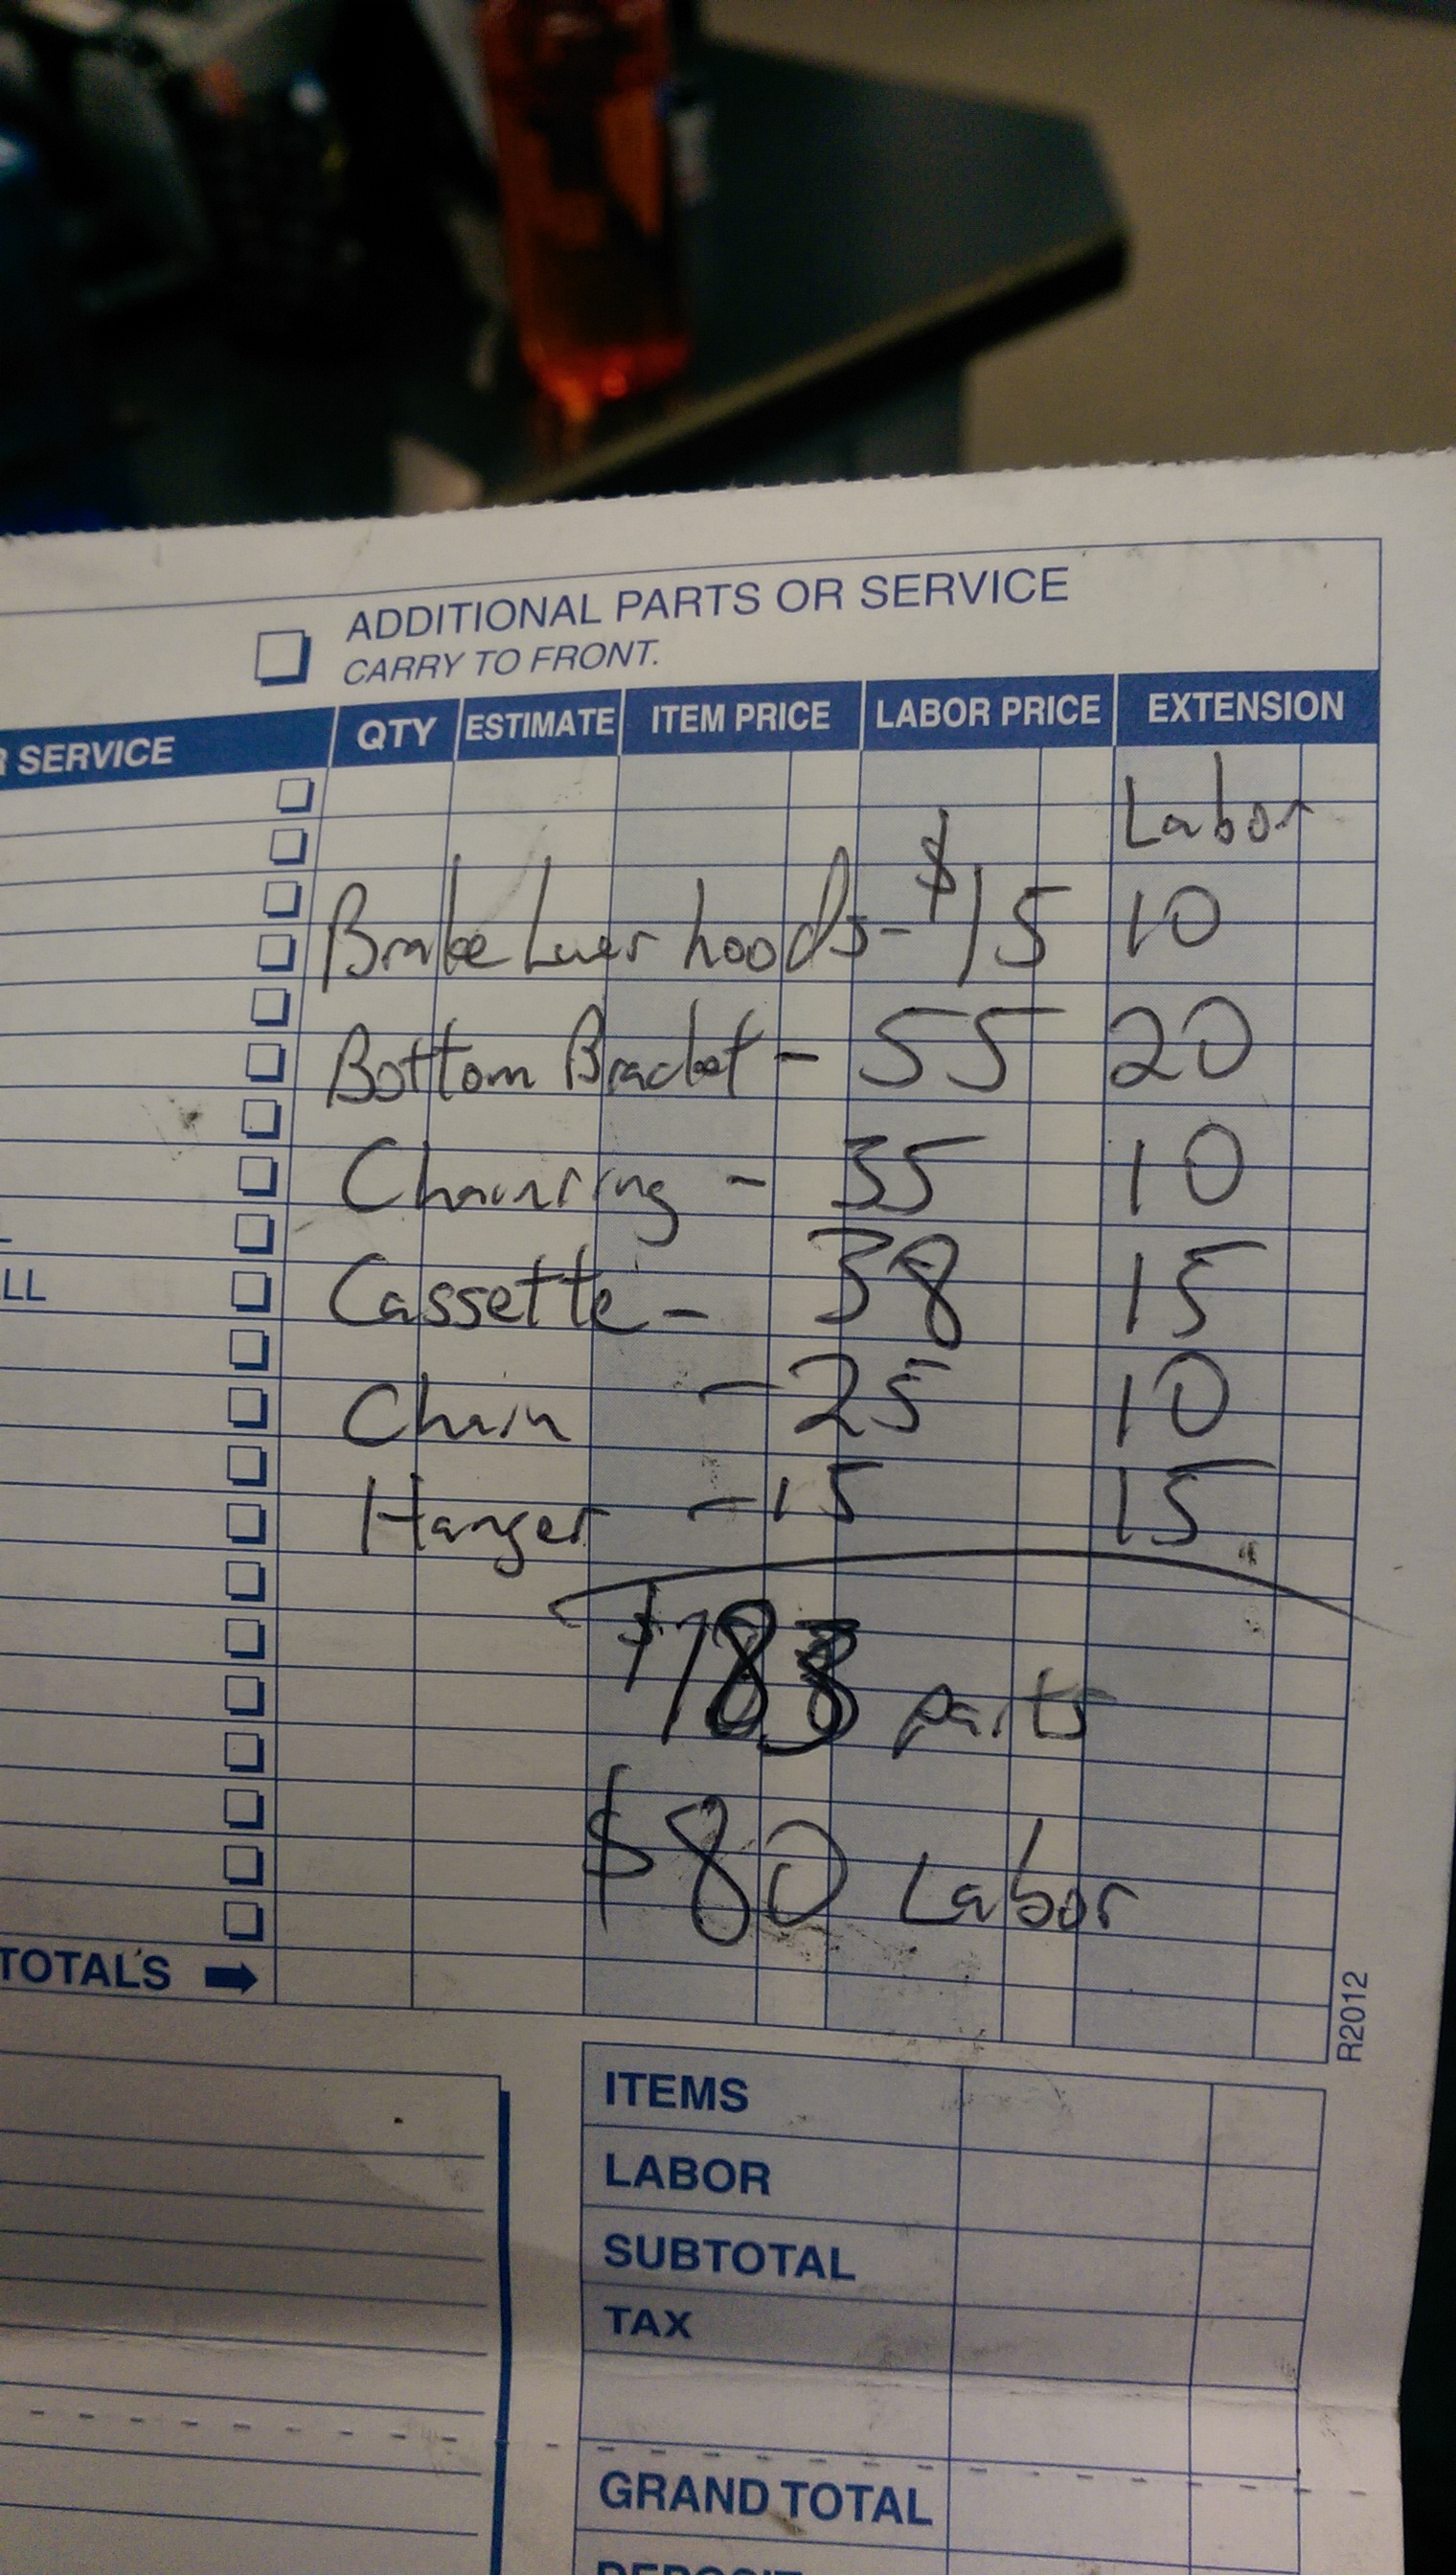 ADDITIONAL PARTS OR SERVICE
CARRY TO FRONT.
SERVICE QTY ESTIMATE ITEM PRICE LABOR PRICE EXTENSION
Labor
Brake Lever hoods - $15 10
Bottom Bracket - 55 20
Chainring - 35 10
Cassette - 38 15
LL
Chain - 25 10
Hanger - 15 15
$183 parts
$80 Labor
TOTALS
R2012
ITEMS
LABOR
SUBTOTAL
TAX
GRAND TOTAL